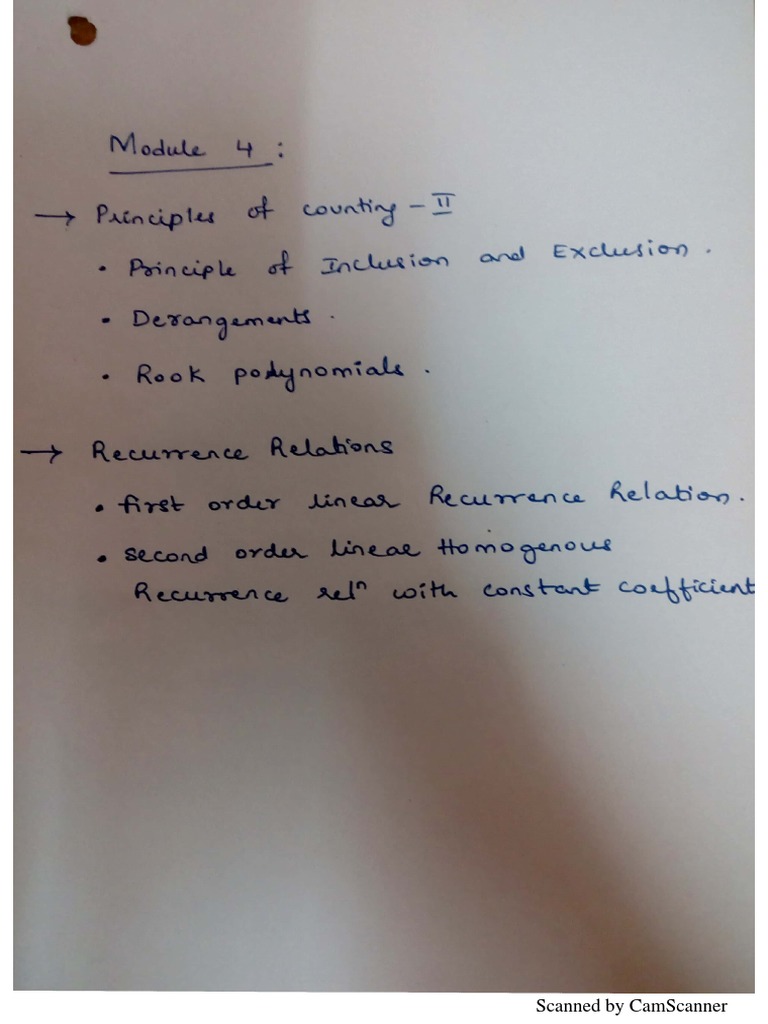 Module 4 :
→ Principles of counting - II
• Principle of Inclusion and Exclusion .
• Derangements .
• Rook polynomials .
→ Recurrence Relations
• first order linear Recurrence Relation .
• Second order linear Homogenous
Recurrence relⁿ with constant coefficient
Scanned by CamScanner